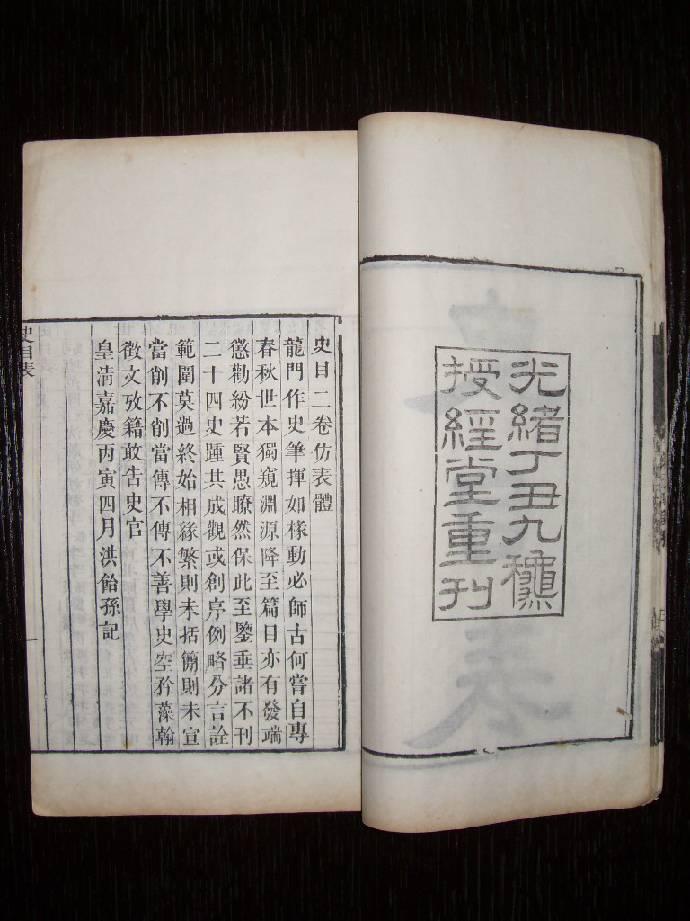 光緒丁丑九穐
授經堂重刊
史目二卷仿表體
龍門作史筆揮如椽動必師古何嘗自專
春秋世本獨窺淵源降至篇目亦有發端
懲勸紛若賢愚瞭然保此至鑒垂諸不刊
二十四史踵共成觀或創序例略分言詮
範圍莫過終始相緣繁則未括儉則未宣
當削不削當傳不傳不善學史空矜藻翰
徵文攷籍敢告史官
皇清嘉慶丙寅四月洪飴孫記
史目表
一